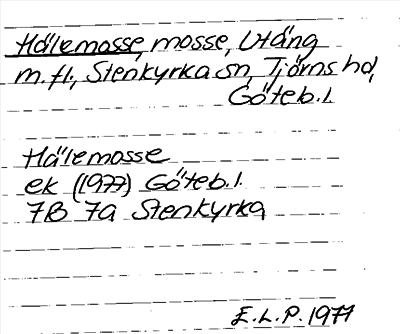 Hälemosse, mosse, Utäng
m.fl., Stenkyrka sn, Tjörns hd,
Göteb.l.
Hälemosse
ek (1977) Göteb.l.
7B 7a Stenkyrka
E.L.P. 1977